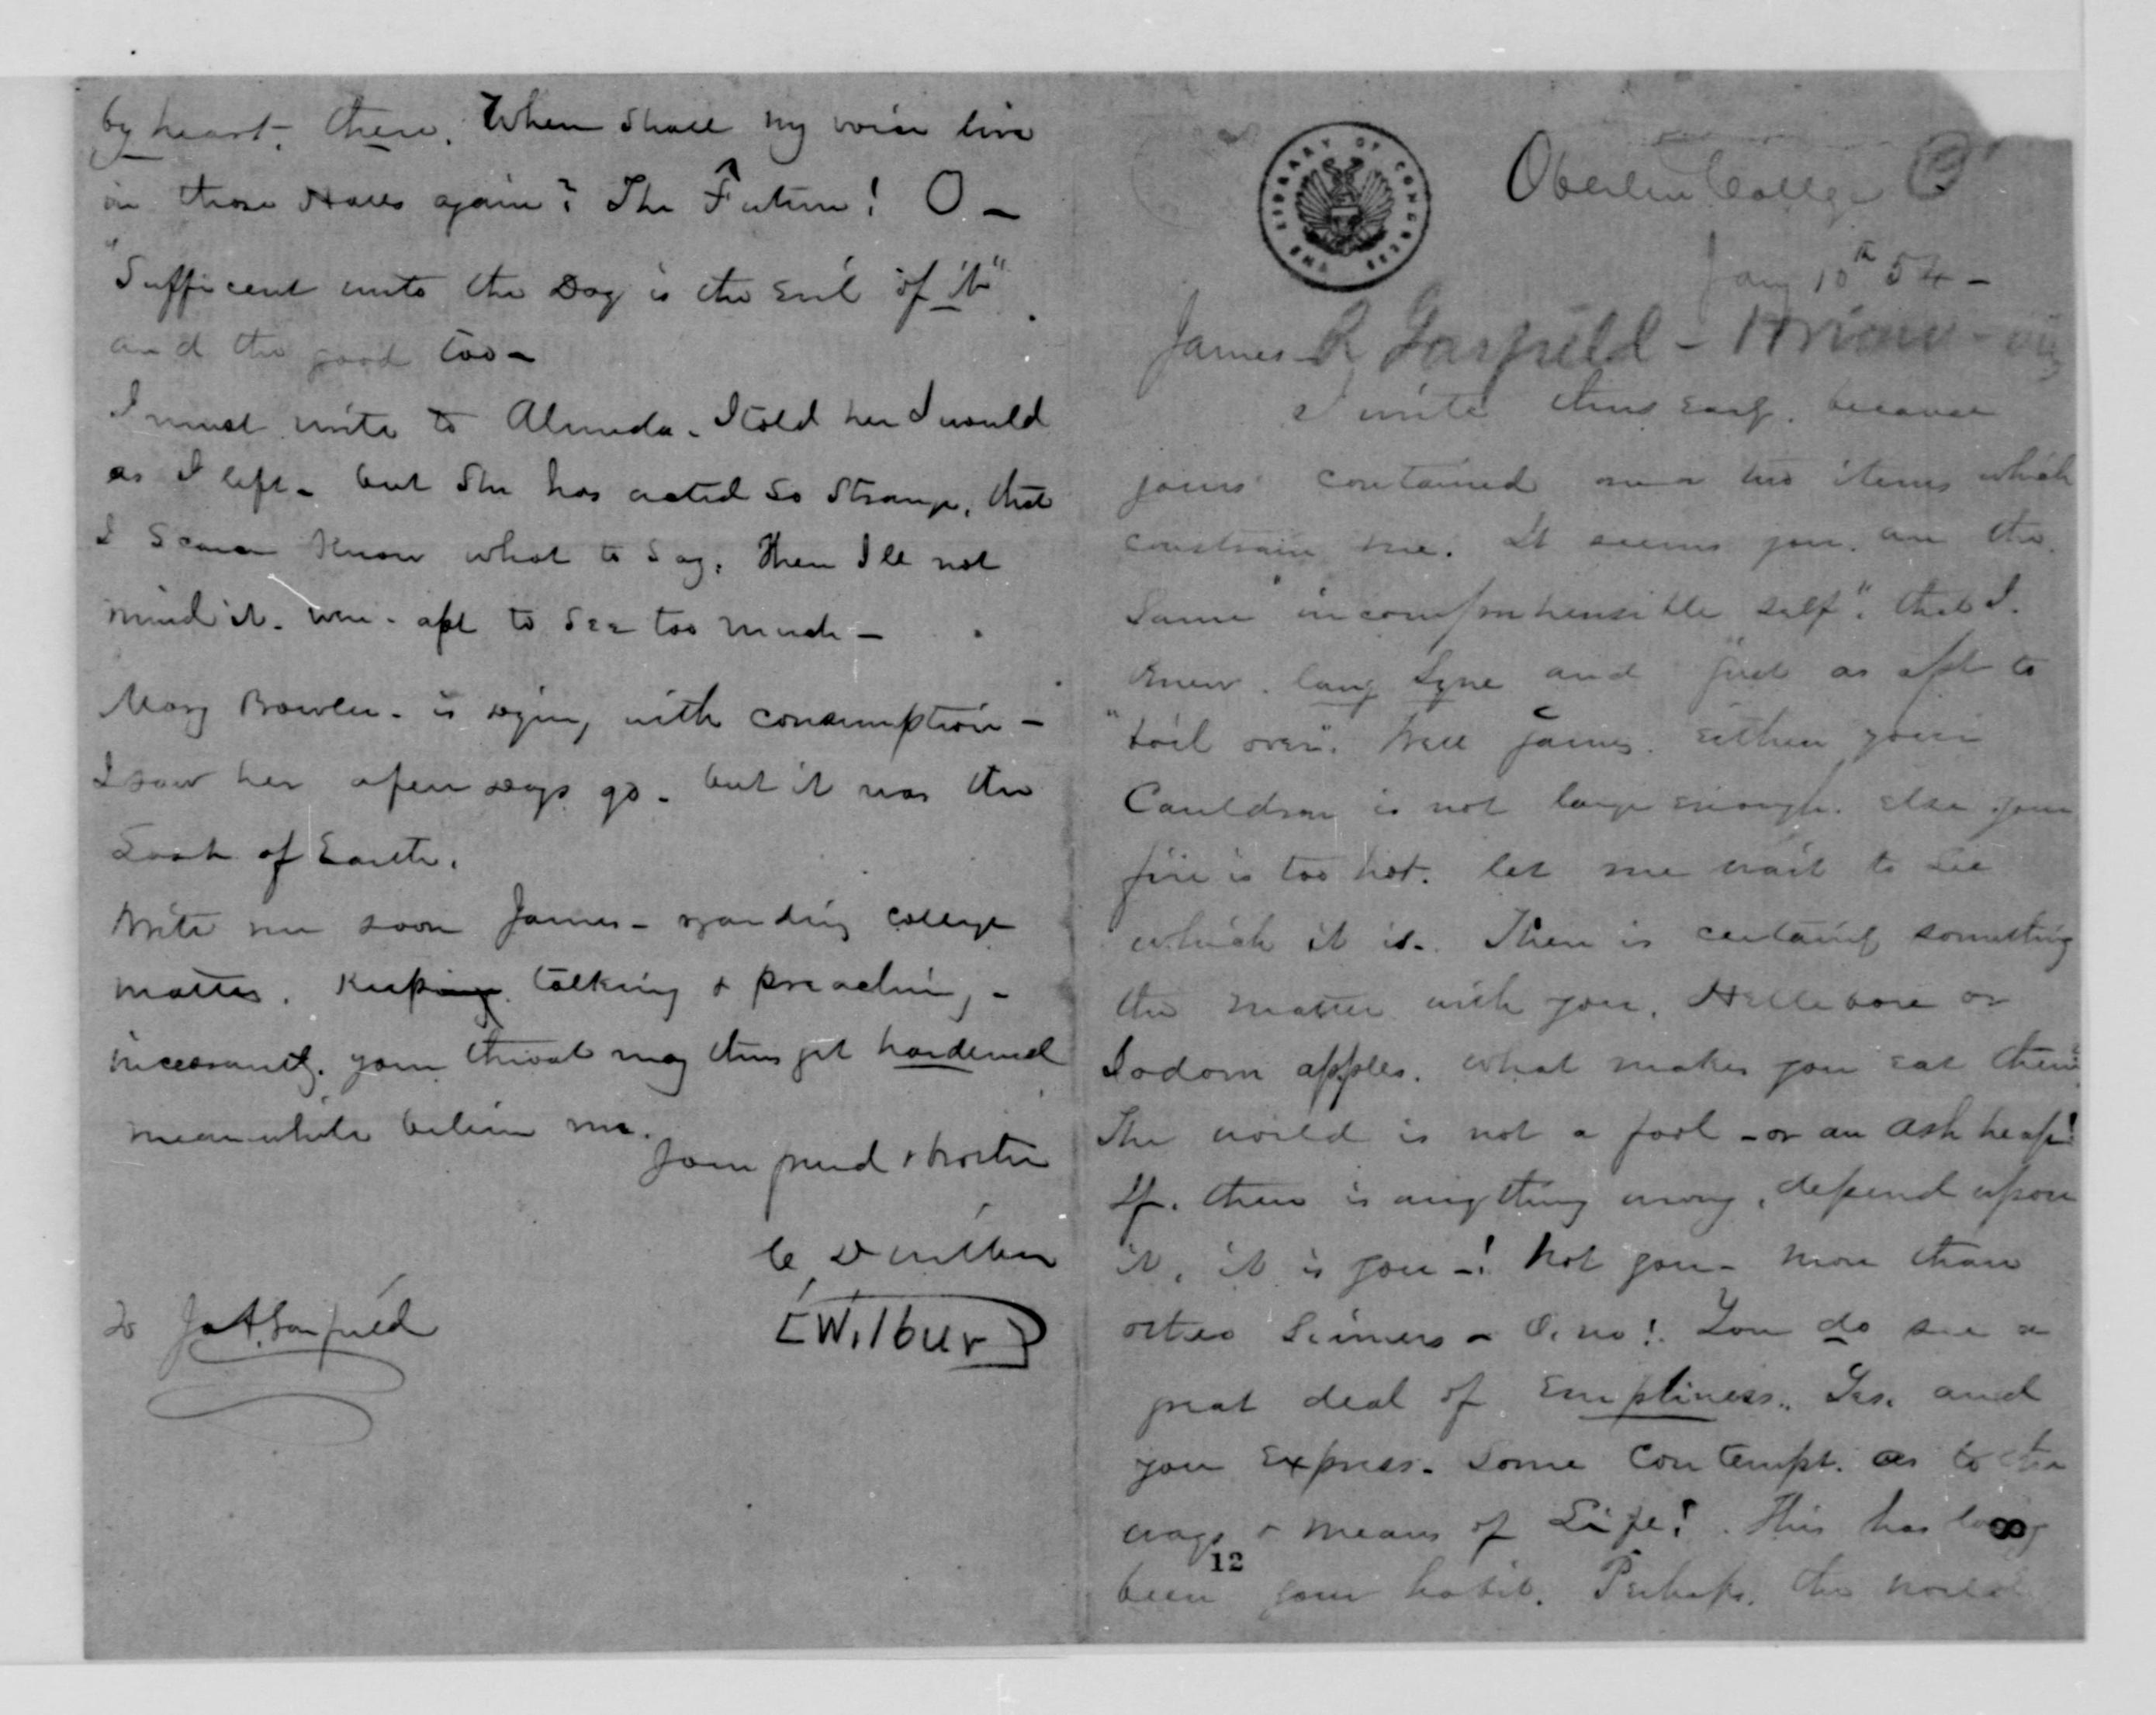 by heart, there. When shall my voice live
in those Halls again? The Future! O —
"Sufficent unto the Day is the evil of it".
and the good too —
I must write to Almeda. I told her I would
as I left — but she has acted so strange, that
I scarce know what to say. Then I'll not
mind it. we're apt to see too much —
Mary Bowler is dying with consumption —
I saw her a few days ago — but it was the
Look of Earth.
Write me soon James — regarding college
matters. Keep talking & preaching —
incessantly. your throat may thus get hardened
meanwhile believe me.
Your friend & brother
C D Wilber
[Wilbur]
To Ja A. Garfield
THE LIBRARY OF CONGRESS
Oberlin College O
Jany 10th 54 —
James R Garfield — Hiram
I write thus early. because
yours contained one or two items which
constrain me. It seems you are the
same "incomprehensible self". that I
knew. lang syne and just as apt to
"boil over". Well James. either your
Cauldron is not large enough. else your
fire is too hot. let me wait to see
which it is. There is certainly something
the matter with you. Hellebore or
Sodom apples. what makes you eat them
The world is not a fool — or an ash heap!
If. there is anything wrong, depend upon
it, it is you —! Not you — more than
other Sinners — O. no! You do see a
great deal of Emptiness. Yes. and
you express. some contempt. as to the
ways & means of Life! This has long
8
12
been your habit. Perhaps. the world